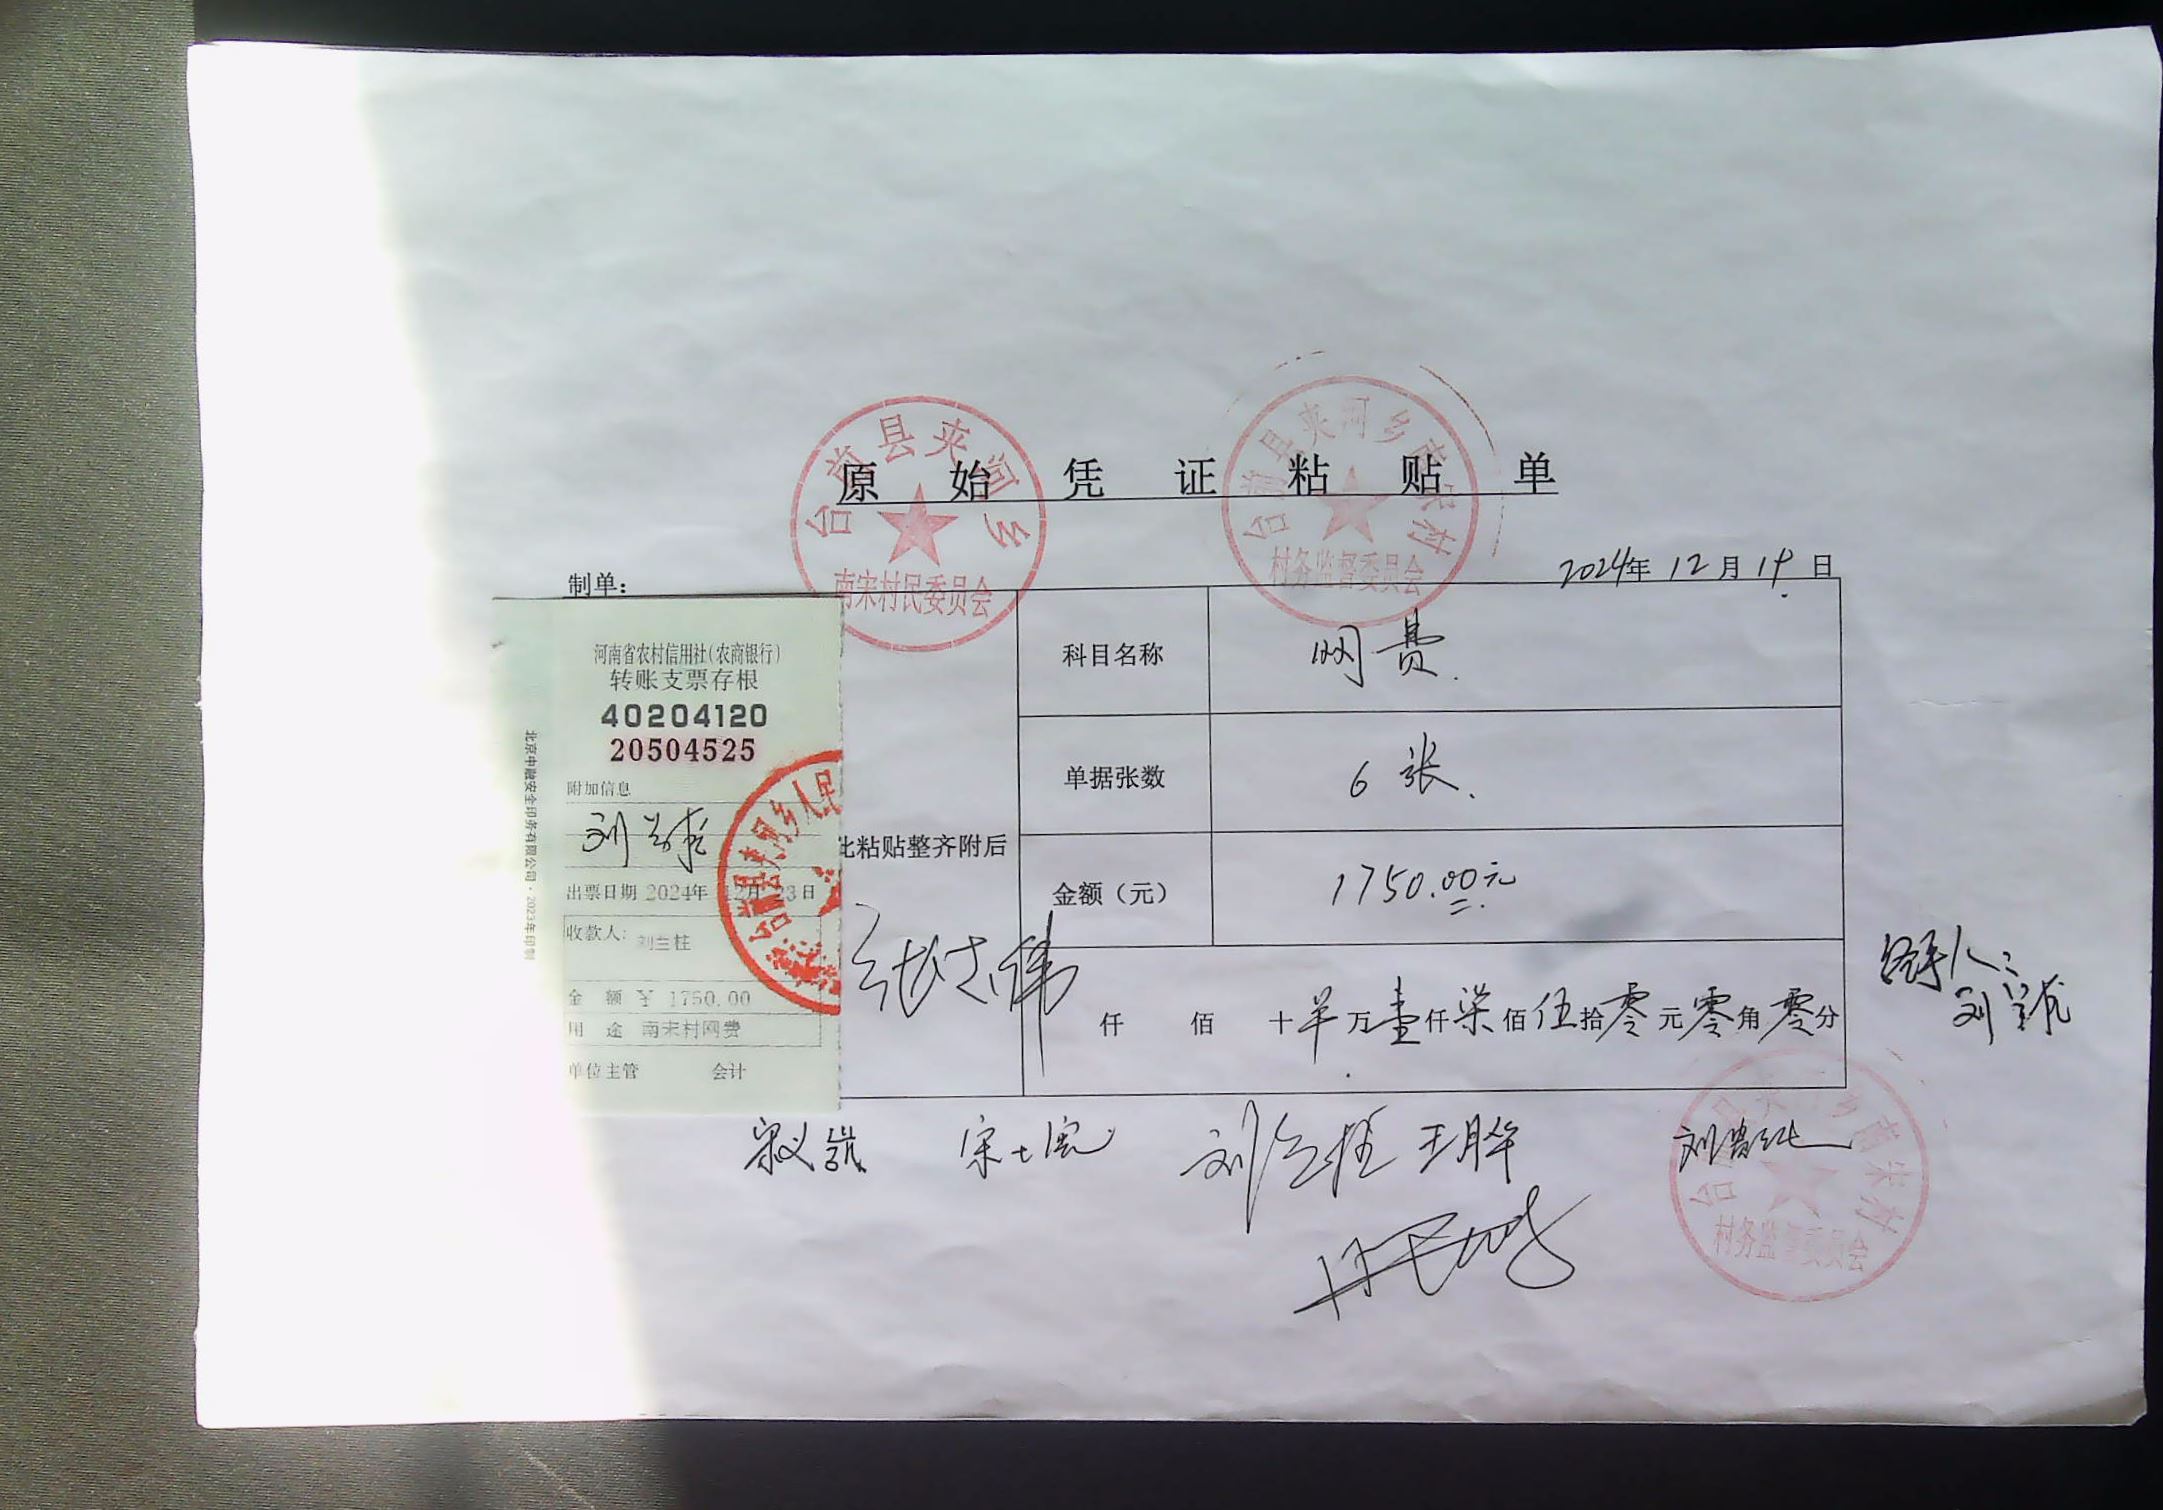 原始凭证粘贴单
台前县夹河乡
南宋村民委员会
台前县夹河乡南宋村
村务监督委员会
制单：
2024年12月19日
河南省农村信用社(农商银行)
转账支票存根
40204120
20504525
附加信息
出票日期 2024年12月23日
收款人: 刘兰柱
金 额 ¥ 1750.00
用 途 南宋村网费
单位主管 会计
北京中融安全印务有限公司·2023年印制
台前县夹河乡人民
此粘贴整齐附后
科目名称 网费
单据张数 6张
金额（元） 1750.00元
仟 佰 十 万壹仟柒佰伍拾零元零角零分
张志伟
经手人:
刘兰柱 王胜华
台前县夹河乡南宋村
村务监督委员会